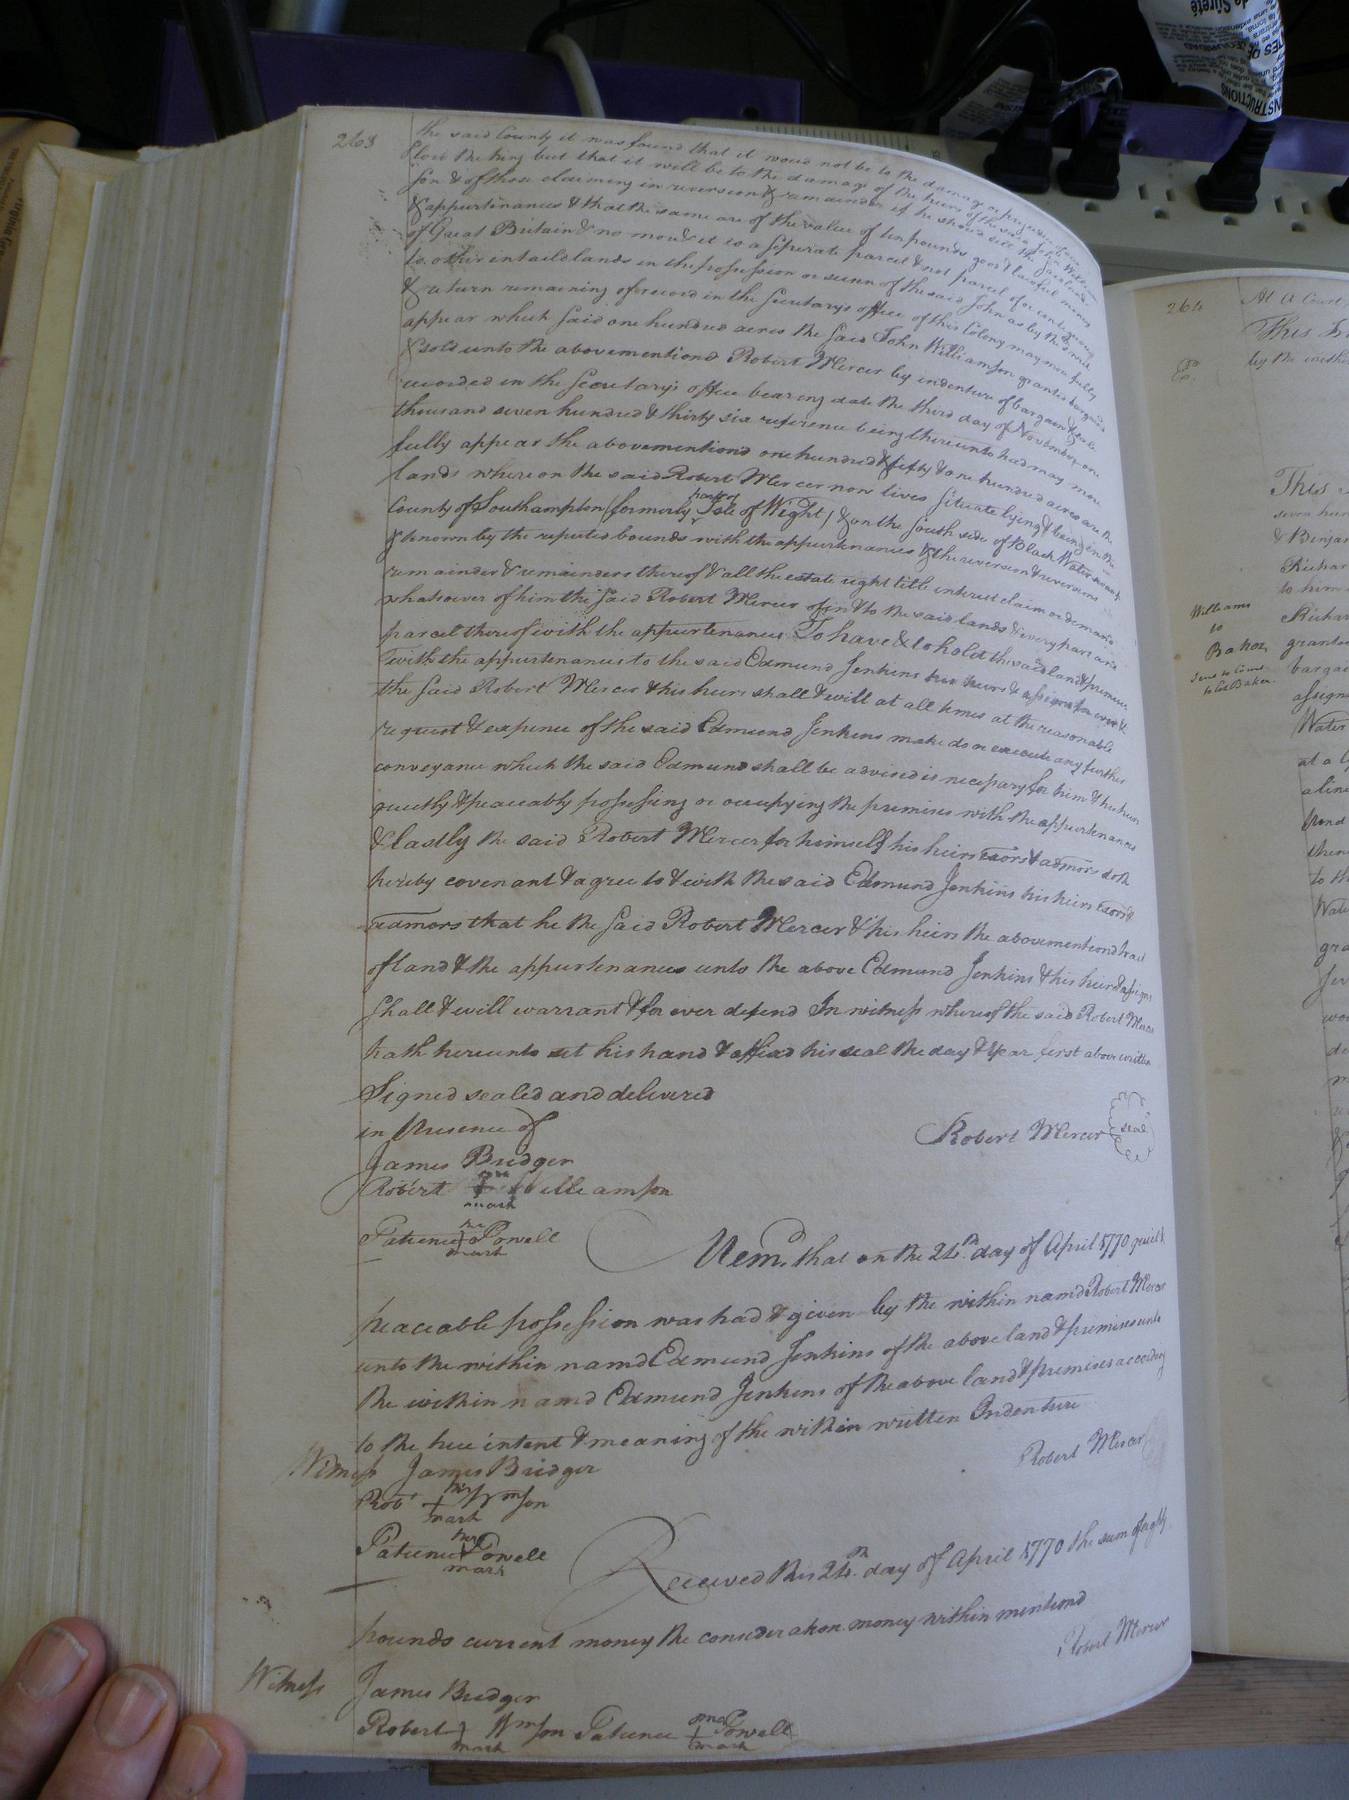 263
the said County it was found that it would not be to the damage or prejudice of our
said the King but that it will be to the damage of the heirs of the said John William
son & of those claiming in reversion & remainder if he should sell the said land
& appurtenances & that the same are of the value of ten pounds good & lawful money
of Great Britain & no more & it is a seperate parcel & not parcel of or contiguous
to other entaild lands in the possession or seizen of the said John as by the s writ
& return remaining of record in the Secutarys office of this Colony may more fully
appear which said one hundred acres the said John Williamson granted bargaind
& sold unto the abovementiond Robert Mercer by indenture of bargain & sale
recorded in the Secutarys office bearing date the third day of November one
thousand seven hundred & thirty six reference being thereunto had may more
fully appear the abovementiond one hundred & fifty & one hundred acres are the
lands whereon the said Robert Mercer now lives situate lying & being in the
County of Southampton (formerly part of Isle of Wight) & on the South side of Black Water
& known by the reputed bounds with the appurtenances & the reversion & reversions
remainder & remainders thereof & all the estate right title interest claim or demand
whatsoever of him the said Robert Mercer of in & to the said lands & every part and
parcel thereof with the appurtenances To have & to hold the said land & premises
with the appurtenances to the said Edmund Jenkins his heirs & assigns for ever &
the said Robert Mercer & his heirs shall & will at all times at the reasonable
request & expence of the said Edmund Jenkins make do or execute any further
conveyance which the said Edmund shall be advised is necessary for him & his heirs
quietly & peaceably possessing or occupying the premises with the appurtenances
& lastly the said Robert Mercer for himself his heirs exors & admors doth
hereby covenant & agree to & with the said Edmund Jenkins his heirs exors &
admors that he the said Robert Mercer & his heirs the abovementiond tract
of land & the appurtenances unto the above Edmund Jenkins & his heirs & assigns
shall & will warrant & for ever defend In witness whereof the said Robert Mercer
hath hereunto set his hand & affixd his seal the day & year first above written
Signed sealed and delivered
in Presence of
Robert Mercer seal
James Bridger
Robert + Williamson
mark
Patience her Powell
mark
Memd. that on the 24th day of April 1770 quiet &
peaceable possession was had & given by the within namd Robert Mercer
unto the within namd Edmund Jenkins of the above land & premises unto
the within namd Edmund Jenkins of the above land & premises according
to the true intent & meaning of the within written Indenture
Robert Mercer
Witness James Bridger
Robt. his + Wmson
mark
Patience her Powell
mark
Received this 24th day of April 1770 the sum of eighty
pounds current money the consideration money within mentiond
Robert Mercer
Witness James Bridger
Robert Wmson Patience + Powell
mark mark
264
At a Court
This In
by the within
Ex.
This
seven hun
& Benja
Richar
to him
Williams
to
Baker
Richar
grante
barga
assign
Water
at a
a line
pond
then
to th
Wate
gra
INSTRUCTIONS
de Sûreté